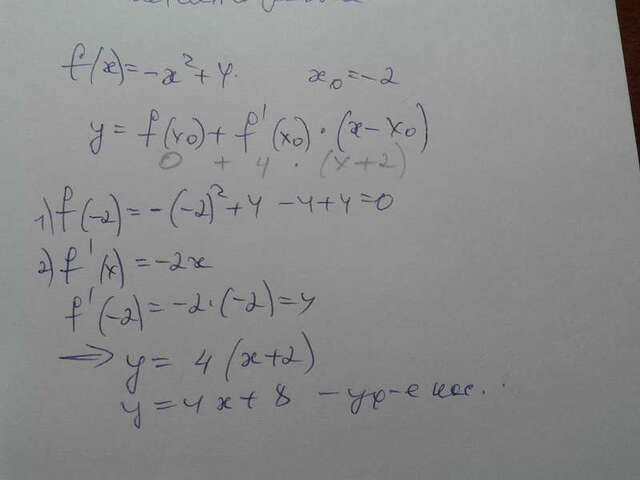 f(x)=-x²+4. x₀=-2
y=f(x₀)+f'(x₀)·(x-x₀)
0 + 4 · (x+2)
1) f(-2)=-(-2)²+4 -4+4=0
2) f'(x)=-2x
f'(-2)=-2·(-2)=4
⇒ y= 4(x+2)
y=4x+8 - ур-е кас.